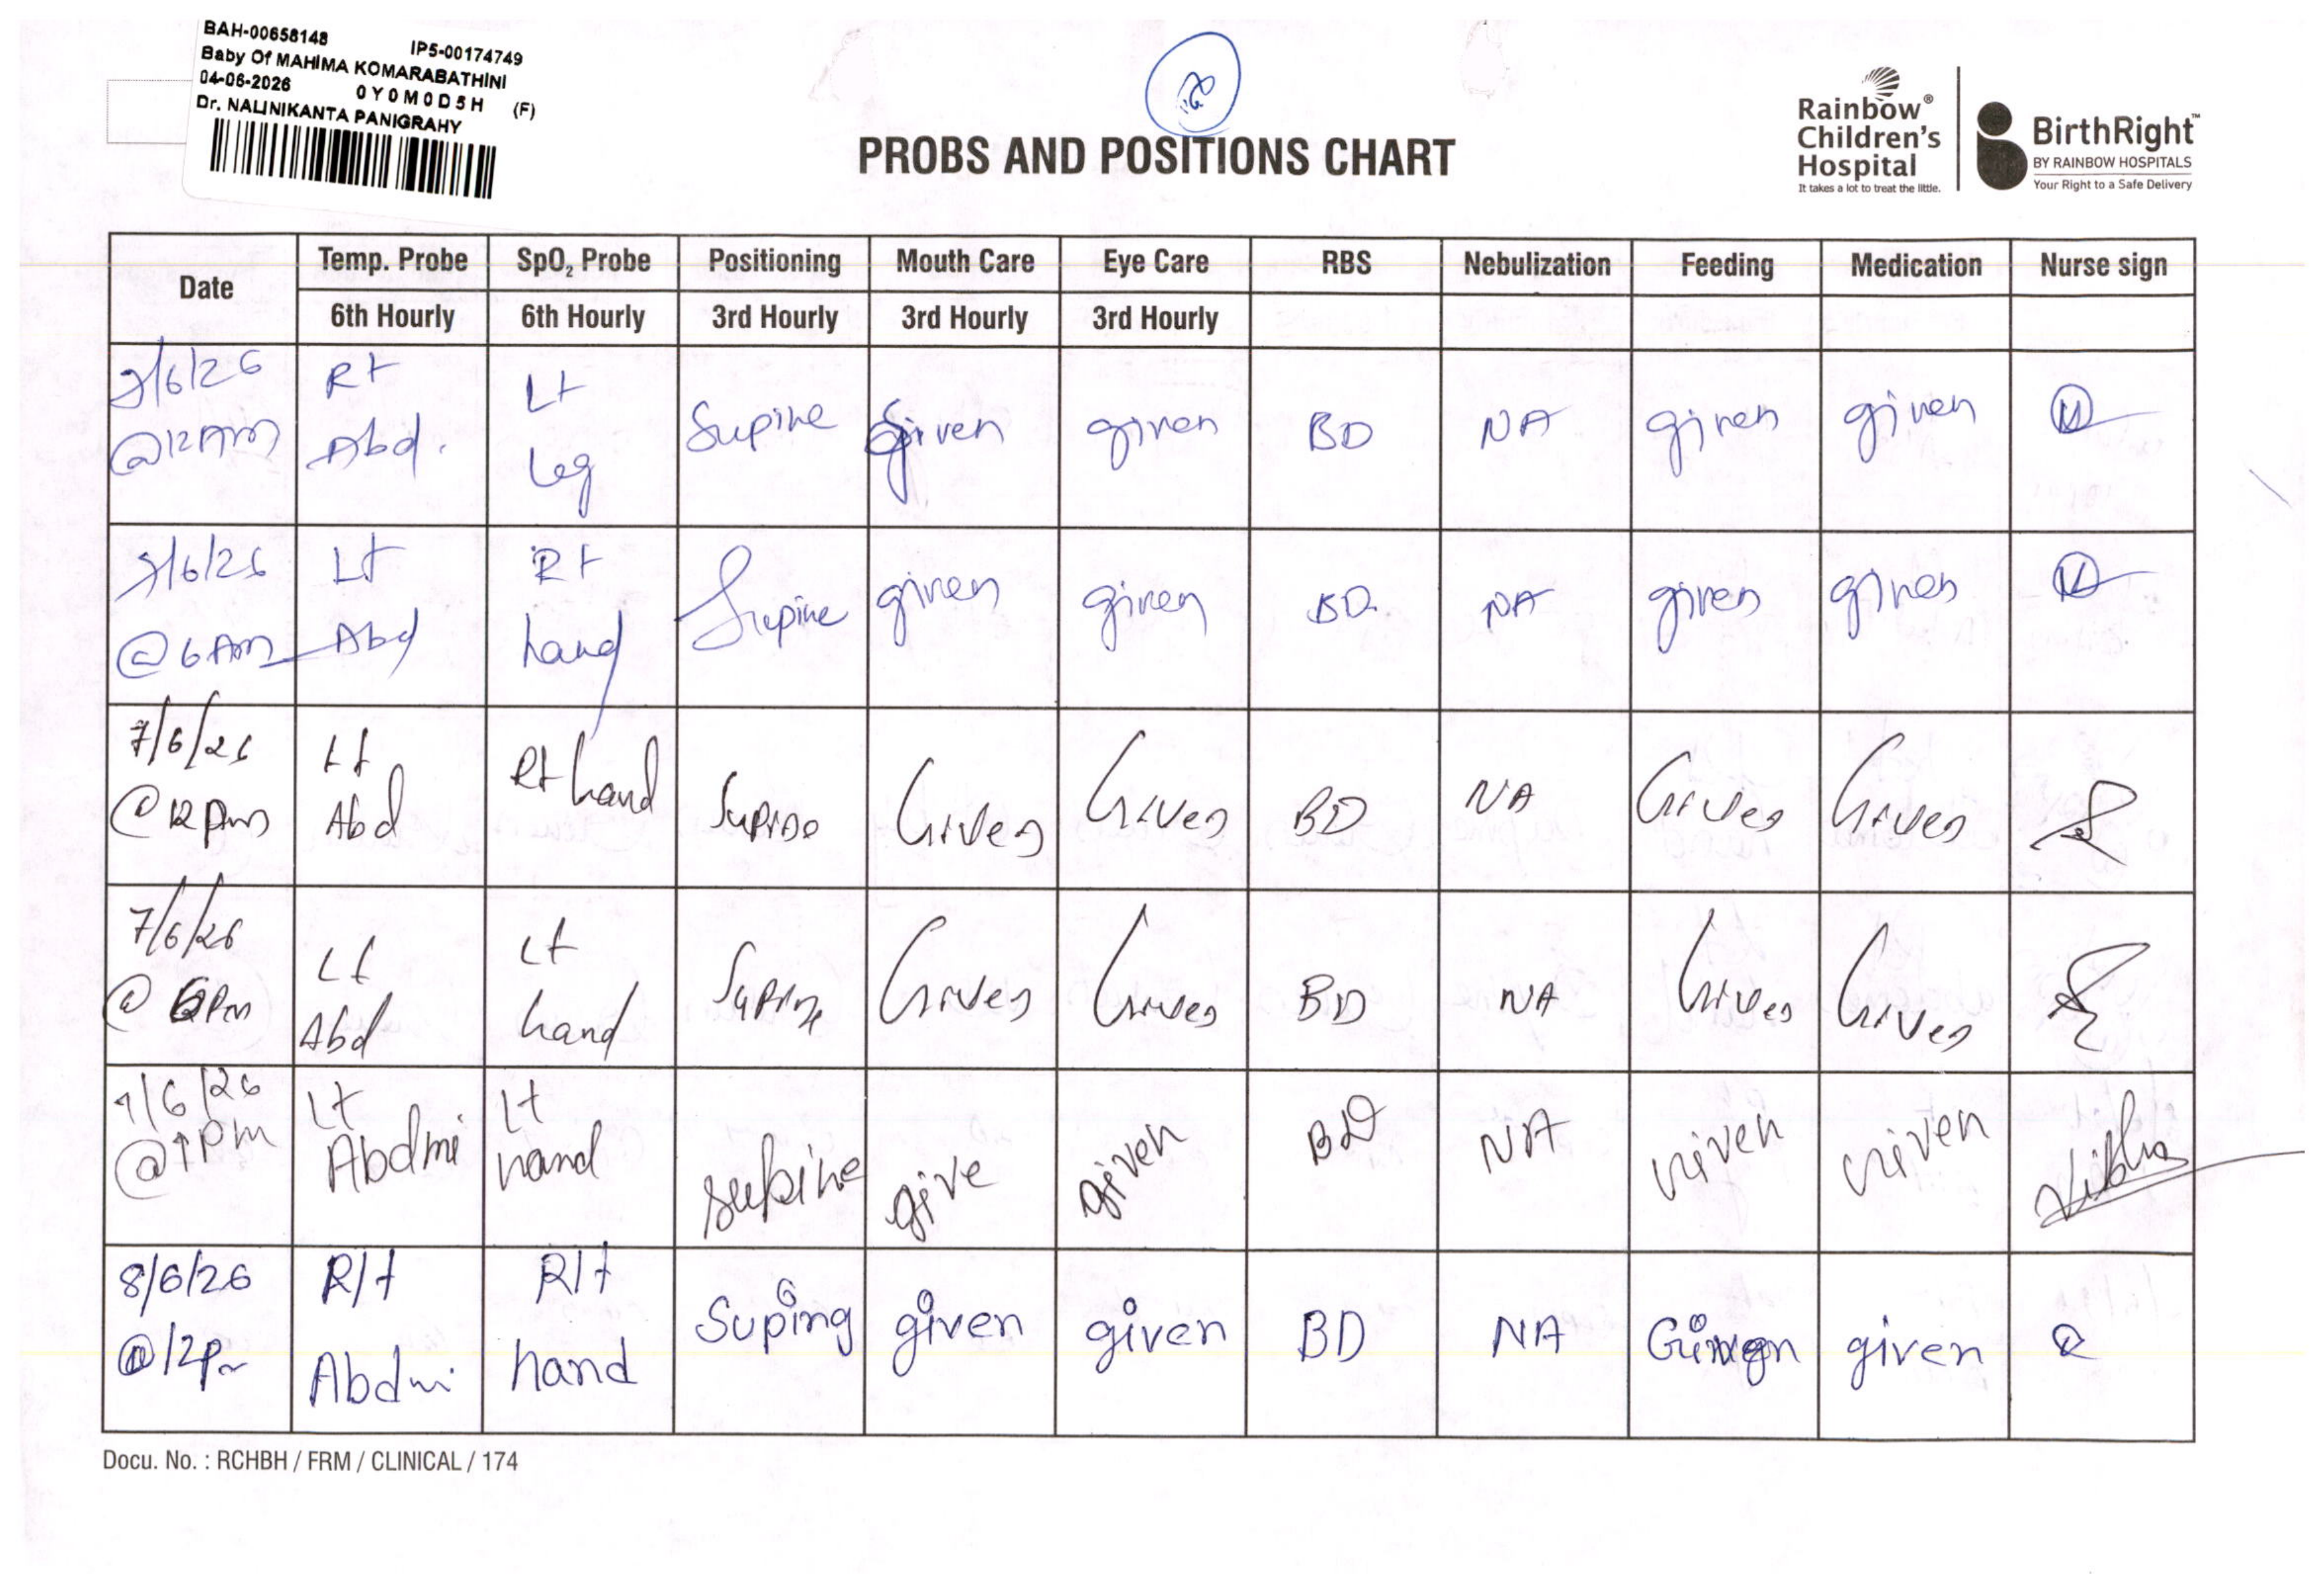 BAH-00658148 IP5-00174749
Baby Of MAHIMA KOMARABATHINI
04-06-2026 0Y0M0D5H (F)
Dr. NALINIKANTA PANIGRAHY
PROBS AND POSITIONS CHART
Rainbow®
Children's
Hospital
It takes a lot to treat the little.
BirthRight™
BY RAINBOW HOSPITALS
Your Right to a Safe Delivery
Date Temp. Probe SpO₂ Probe Positioning Mouth Care Eye Care RBS Nebulization Feeding Medication Nurse sign
6th Hourly 6th Hourly 3rd Hourly 3rd Hourly 3rd Hourly
/6/26 Rt Lt
@12Am Abd. Leg Supine Given given BD NA given given
/6/26 Lt Rt
@6Am Abd hand Supine given given BD NA given given
7/6/26 Lt Rt hand
@12pm Abd Supine Given Given BD NA Given Given
7/6/26 Lt Lt
@6pm Abd hand Supine Given Given BD NA Given Given
/6/26 Lt Lt
Abdmi hand supine give given BD NA given given
8/6/26 R/t R/t
@12pm Abdmi hand Suping given given BD NA Given given
Docu. No. : RCHBH / FRM / CLINICAL / 174